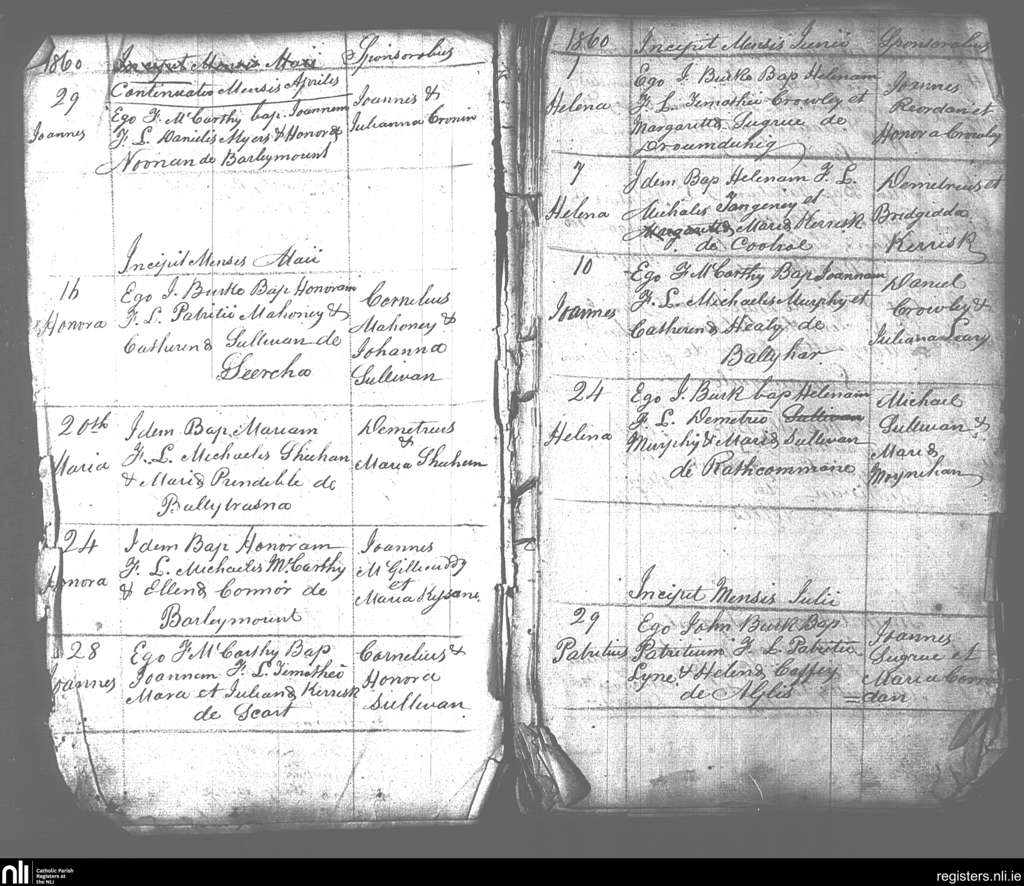 1860
Incipit Mensis Maii
Sponsorabus
Continuatio Mensis Aprilis
29
Joannes
Ego F. McCarthy bap. Joannem
F. L. Danielis Myers & Honora
Noonan de Barleymount
Joannis &
Julianna Cronin
Incipit Mensis Maii
16
Honora
Ego J. Burke Bap Honoram
F. L. Patritii Mahoney &
Catherina Sullivan de
Cornelius
Mahoney &
Johanna
Sullivan
20th
Maria
Idem Bap Mariam
F. L. Michaelis Shuhan
& Maria Prendeble de
Ballytrasna
Demetrius
&
Maria Shuhan
24
Honora
Idem Bap Honoram
F. L. Michaelis McCarthy
& Ellena Connor de
Barleymount
Joannes
McGillicuddy
et
Maria Kissane
28
Joannes
Ego F McCarthy Bap
Joannem F. L. Timotheo
Mara et Juliana Kerrisk
de Scart
Cornelius &
Honora
Sullivan
1860
Incipit Mensis Junii
Sponsorabus
1
Helena
Ego J. Burke Bap Helenam
F. L. Timothei Crowley et
Margaretta Sugrue de
Droumduhig
Joannes
Reordan et
Honora Crowley
7
Helena
Idem Bap Helenam F. L.
Michalis Tangeney et
Margaretta Maria Kerrisk
de Coolrae
Demetrius et
Bridgedda
Kerrisk
10
Joannes
Ego F McCarthy Bap Joannam
F. L. Michaelis Murphy et
Catherina Healy de
Ballyhar
Daniel
Crowley &
Juliana Leary
24
Helena
Ego J. Burk bap Helenam
F. L. Demetrio Sullivan
Murphy & Maria Sullivan
de Rathcommane
Michael
Sullivan &
Maria
Moynihan
Incipit Mensis Julii
29
Patritius
Ego John Burk Bap
Patritium F. L. Patritio
Lyne & Helena Coffey
de Aglis
Joannes
Sugrue et
Maria Connor
=dan
nli
Catholic Parish
Registers at
the NLI
registers.nli.ie